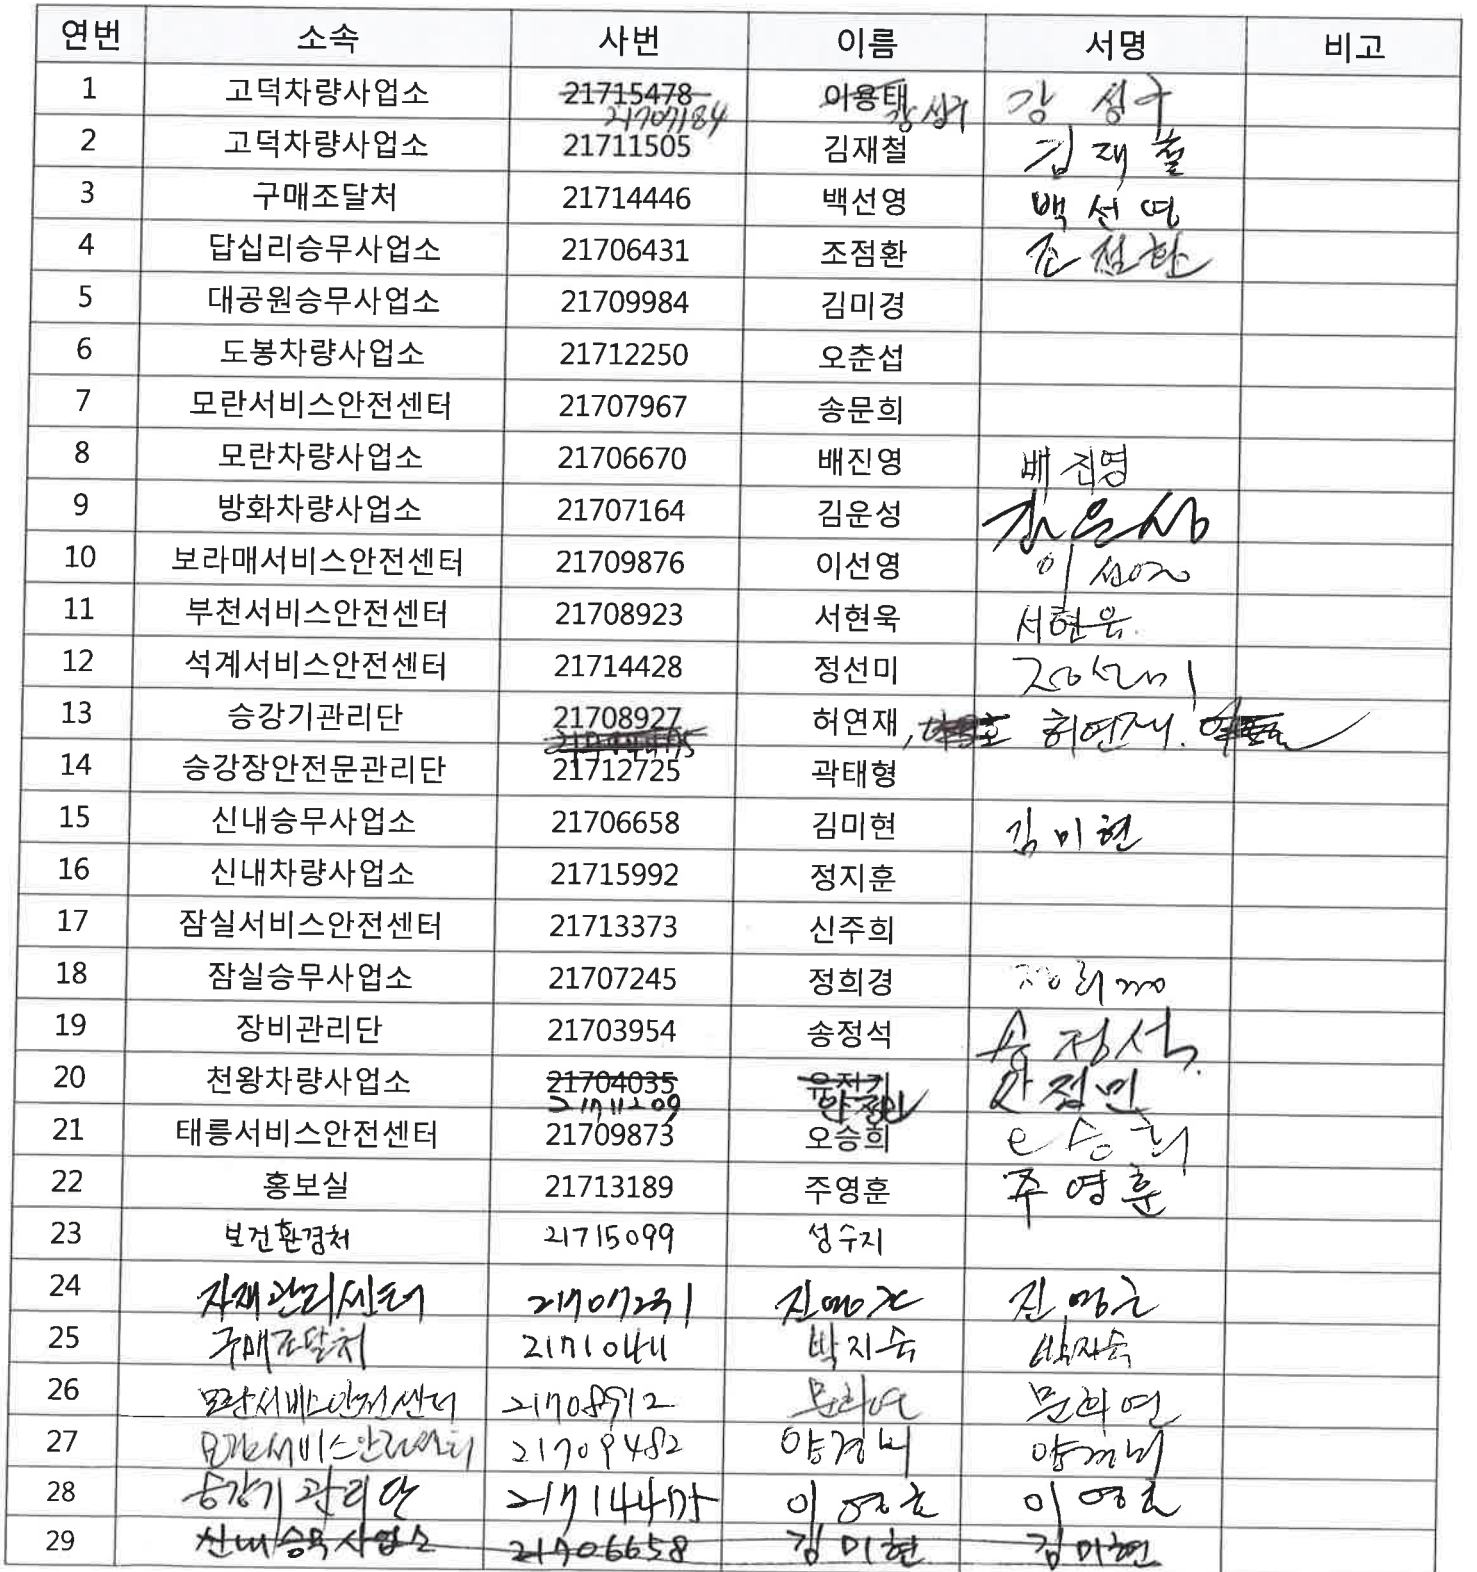 연번 소속 사번 이름 서명 비고
1 고덕차량사업소 21715478 이용태 강성구
21707184 강성구
2 고덕차량사업소 21711505 김재철 김재철
3 구매조달처 21714446 백선영 백선영
4 답십리승무사업소 21706431 조점환 조점환
5 대공원승무사업소 21709984 김미경
6 도봉차량사업소 21712250 오춘섭
7 모란서비스안전센터 21707967 송문희
8 모란차량사업소 21706670 배진영 배진영
9 방화차량사업소 21707164 김운성 김운성
10 보라매서비스안전센터 21709876 이선영 이선영
11 부천서비스안전센터 21708923 서현욱 서현욱.
12 석계서비스안전센터 21714428 정선미 정선미
13 승강기관리단 21708927 허연재, 허연재.
14 승강장안전문관리단 21712725 곽태형
15 신내승무사업소 21706658 김미현 김미현
16 신내차량사업소 21715992 정지훈
17 잠실서비스안전센터 21713373 신주희
18 잠실승무사업소 21707245 정희경 정희경
19 장비관리단 21703954 송정석 송정석.
20 천왕차량사업소 21704035 안점민
21711209 안점민
21 태릉서비스안전센터 21709873 오승희 오승희
22 홍보실 21713189 주영훈 주영훈
23 보건환경처 21715099 성수지
24 자재관리센터 21707231 진영근 진영근
25 구매조달처 21710411 박지숙 박지숙
26 모란서비스안전센터 21708912 문희연 문희연
27 21709482
28 승강기관리단 21714475 이영호 이영호
29 신내승무사업소 21706658 김미현 김미현